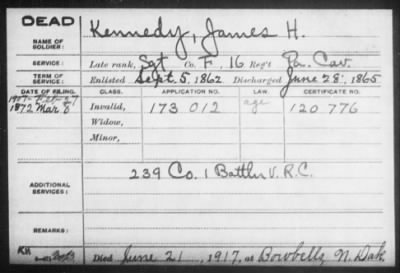 DEAD
NAME OF SOLDIER: Kennedy, James H.
SERVICE: Late rank, Sgt Co. F, 16 Reg't Pa. Cav.
TERM OF SERVICE: Enlisted Sept. 5, 1862 Discharged June 28, 1865
DATE OF FILING. CLASS. APPLICATION NO. LAW. CERTIFICATE NO.
1907-Feb-27
1872 Mar 8 Invalid, 173 012 age 120 776
Widow,
Minor,
ADDITIONAL SERVICES: 239 Co. 1 Battln V.R.C.
REMARKS:
Died June 21, 1917, at Bowbells N. Dak.